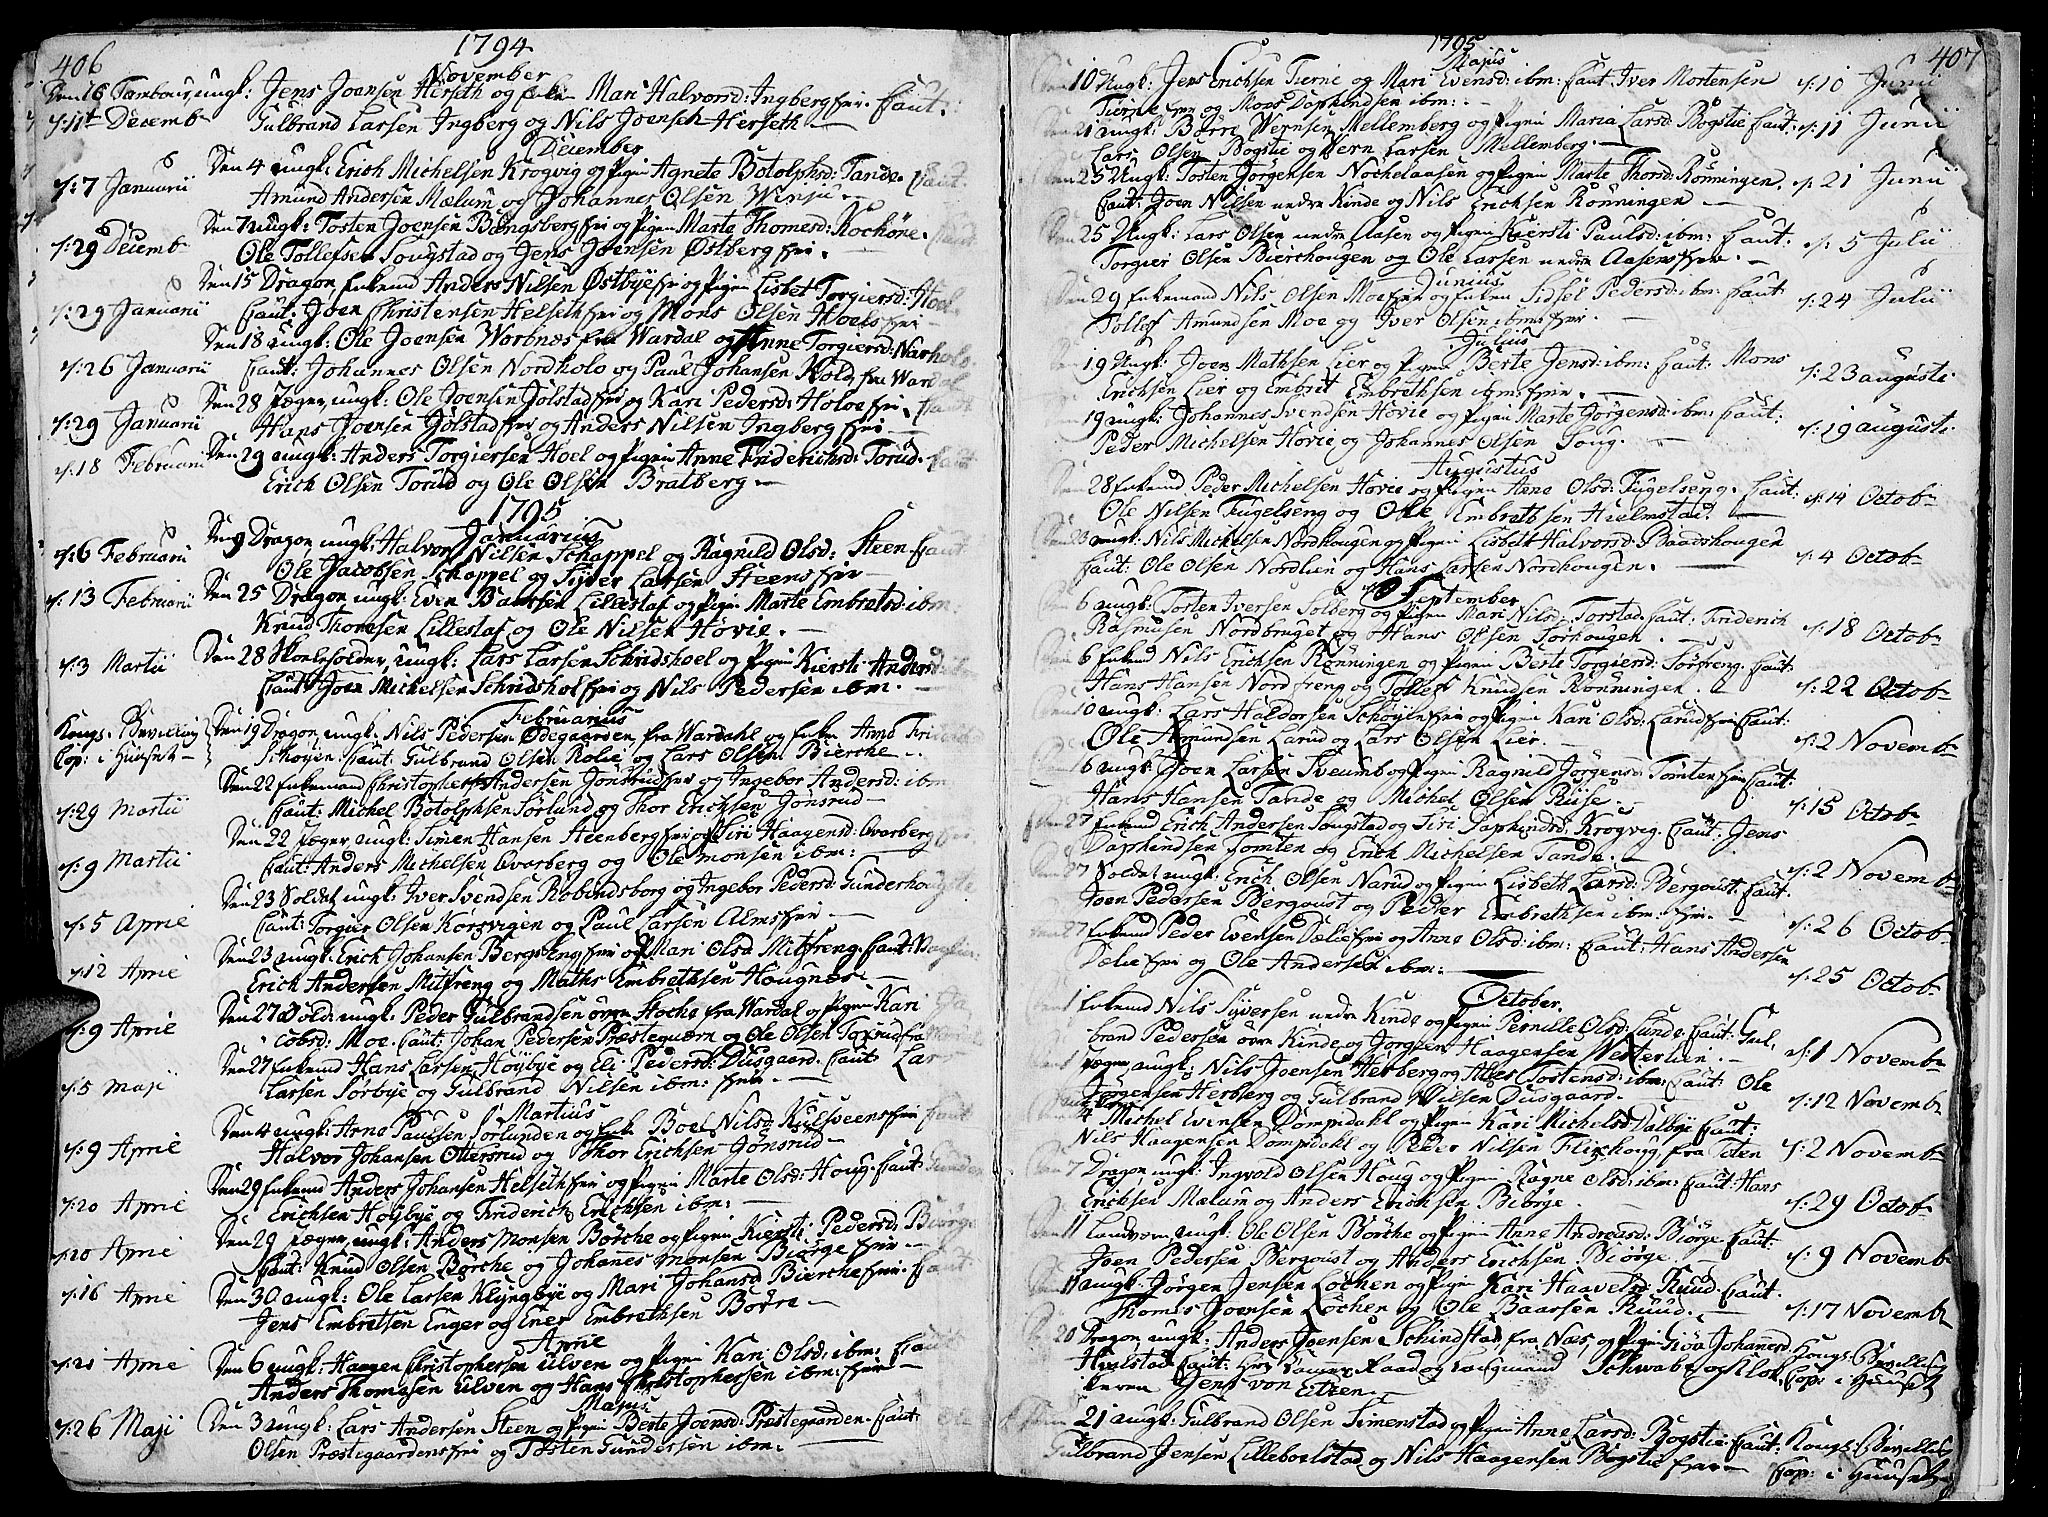 406
1794
November
Den 16 Tambour, ungk: Jens Joensen Herseth og Enken Mari Halvorsd: Ingberg fri. Caut:
Gulbrand Larsen Ingberg og Nils Joensen Herseth
c/: 11te Decemb
December
Den 4 ungk: Erich Michelsen Krogvig og Pigen Agnete Botolphsd: Tande. Caut.
Amund Andersen Mælum og Johannes Olsen Winju.
c/: 7 Januarii
Den 7 ungk: Tosten Joensen Bangsberg fri og Pigen Marte Thomesd: Kochöne.
Ole Tollefsen Sougstad og Jens Joensen Østberg fri.
c/: 29 Decemb
Den 15 Dragon, Enkemd Anders Nilsen Østbye fri og Pigen Lisbet Torgiersd: Hoel
Caut: Joen Christensen Helseth fri og Mons Olsen Hoels fri
c/: 29 Januarii
Den 18 ungk: Ole Joensen Worbnæs fra Wardal og Anne Torgiersd: Narholo
Caut: Johannes Olsen Nordholo og Paul Johansen Hold fra Wardal
c/: 26 Januarii
Den 28 Jæger, ungk: Ole Joensen Jölstad fri og Kari Pedersd: Holoe fri. Caut
Hans Joensen Gölstad fri og Anders Nilsen Ingberg fri
c/: 29 Januarii
Den 29 ungk: Anders Torgiersen Hoel og Pigen Anne Friderichsd: Torud. Caut
Erich Olsen Torud og Ole Olsen Bratberg.
c/: 18 Februarii
1795
Januarius
Den 9 Dragon, ungk: Halvor Nilsen Schappel og Ragnild Olsd: Steen Caut
Ole Jacobsen Schappel og Syver Larsen Steens fri
c/: 6 Februarii
Den 25 Dragon ungk: Even Baarsen Lillestaf og Pigen Marte Embretsd: ibm:
Knud Thomesen Lillestaf og Ole Nilsen Hovie.
c/: 13 Februarii
Den 28 Skoleholder, ungk: Lars Larsen Schridshoel og Pigen Kiersti Andersd
Caut: Joen Michelsen Schridshol fri og Nils Pedersen ibm.
c/: 3 Martii
Februarius
Den 19 Dragon, ungk: Nils Pedersen Ødegaarden fra Wardahl og Enken Anne
Skoyen. Caut: Gulbrand Olsen Rolie og Lars Olsen Bierche
Kongs. Bevilling
Cop: i Huuset
Den 22 Enkemand Christopher Andersen Jonsrud fri og Ingebor Andersd: ibm
Caut: Michel Botolphsen Sørlund og Thor Erichsen Jonsrud
c/: 29 Martii
Den 22 Jæger, ungk: Simen Hansen Steenberg fri og Siri Haagensd: Overberg
Caut: Anders Michelsen Overberg og Ole Monsen ibm:
c/: 9 Martii
Den 23 Soldat ungk: Iver Svendsen Robundsborg og Ingebor Pedersd: Gunderhougst
Caut: Torgier Olsen Korsvigen og Paul Larsen Alms fri
c/: 5 April
Den 23 ungk: Erich Johansen Bergseng fri og Mari Olsd Mitfreng. Caut:
Erich Andersen Mitfreng og Maths Embrethsen Hougnæs.
c/: 12 April
Den 27 Sold: ungk: Peder Gulbrandsen øvre Hoche fra Wardal og Pigen Kari Ja
cobsd: Moe. Caut: Johan Pedersen Præsteqværn og Ole Olsen Toxrud fra
c/: 9 April
Den 27 Enkemd Hans Larsen Höybye og Eli Pedersd: Dusgaard. Caut Lars
Larsen Sörbye og Gulbrand Nilsen ibm: fri.
c/: 5 Maji
Martius
Den 4 ungk: Arne Paulsen Sørlunden og Enk Boel Nilsd: Kulsveens fri Caut
Halvor Johansen Ottersrud og Thor Erichsen Jønsrud
c/: 9 April
Den 29 Enkemd Anders Johansen Helseth fri og Pigen Marte Olsd: Houg. Caut: Gunder
Erichsen Höybye og Friderich Erichsen ibm:
c/: 20 April
Den 29 Jæger, ungk: Anders Monsen Börche og Pigen Kiersti Pedersd: Biörge
Caut: Knud Olsen Börche og Johannes Monsen Biörge fri
c/: 20 April
Den 30 ungk: Ole Larsen Klyngbye og Mari Johansd Bierche fri. Caut
Jens Embretsen Enger og Ener Embrethsen Bovre
c/: 16 April
April
Den 6 ungk: Haagen Christophersen Ulven og Pigen Kari Olsd: ibm: Caut
Anders Thomasen Ulven og Hans Christophersen ibm: fri
c/: 21 April
Majus
Den 3 ungk: Lars Andersen Steen og Pigen Berte Joensd: Præstegaarden. Caut: Ole
Olsen Præstegaardens fri og Tosten Gundersen ibm:
c/: 26 Maji
407
1795
Majus
10 Ungk: Jens Erichsen Tierne og Mari Evensd: ibm: Caut Iver Mortensen
Tierne fri og Mons Daphindsen ibm:
c/: 10 Junii
Den 21 ungk: Børri Wernsen Mellemberg og Pigen Maria Larsd: Bogstie Caut.
Lars Olsen Bogstie og Wern Larsen Mellemberg.
c/: 11 Junii
Den 25 Ungk: Tosten Jørgensen Nöchelaasen og Pigen Marte Thorsd: Rönningen.
Caut: Joen Nilsen nedre Kinde og Nils Erichsen Rönningen
c/: 21 Junii
Den 25 Ungk: Lars Olsen nedre Aasen og Pigen Kiersti Paulsd: ibm: Caut:
Torgier Olsen Bierchougen og Ole Larsen nedre Aasens fri.
c/: 5 Julii
Junius
Den 29 Enkemand Nils Olsen Moe fri og Enken Sidsel Pedersd: ibm: Caut
Tollef Amundsen Moe og Iver Olsen ibm: fri.
c/: 24 Julii
Julius
19 Ungk: Joen Mathsen Lier og Pigen Berte Jensd: ibm: Caut: Mons
Erichsen Lier og Embret Embrethsen ibm: fri.
c/: 23 Augusti
19 ungk: Johannes Svendsen Hovie og Pigen Marte Jörgensd: ibm: Caut:
Peder Michelsen Hovie og Johannes Olsen Soug.
c/: 19 Augusti
Augustus
28 Enkemd Peder Michelsen Hovie og Pigen Anne Olsd: Fugelseng. Caut:
Ole Nilsen Fugelseng og Ole Embrethsen Hielmstad.
c/: 14 Octob
Den 23 ungk: Nils Michelsen Nordhougen og Pigen Lisbeth Halvorsd: Baadshougen
Caut: Ole Olsen Nordlien og Hans Larsen Nordhougen.
c/: 4 Octob
September
6 ungk: Tosten Iversen Solberg og Pigen Mari Nilsd: Torstad. Caut: Friderich
Rasmusen Nordbruget og Hans Olsen Sörhougen.
c/: 18 Octob
6 Enkemd Nils Erichsen Rönningen og Pigen Berte Torgiersd: Sörfreng. Caut:
Hans Hansen Nordfreng og Tollef Knudsen Rönningen.
c/: 22 Octob
ungk: Lars Haldorsen Schöyen fri og Pigen Kari Olsd: Larud fri Caut:
Ole Amundsen Larud og Lars Olsen Lier.
c/: 2 Novemb
6 ungk: Joen Larsen Sveumb og Pigen Ragnild Jörgensd: Tomten fri Caut:
Hans Hansen Tande og Michel Olsen Riise.
c/: 15 Octob
Den 27 Enkemd Erich Andersen Sougstad og Siri Daphindsd: Krogvig. Caut: Jens
Daphindsen Tomten og Erich Michelsen Tande.
c/: 2 Novemb
27 Soldat ungk: Erich Olsen Narud og Pigen Lisbeth Larsd: Bergqvist. Caut.
Joen Pedersen Bergqvist og Peder Embrethsen ibm: fri.
c/: 26 Octob
27 Enkemd Peder Evensen Dælie fri og Anne Olsd: ibm: Caut: Hans Andersen
Dælie fri og Ole Andersen ibm:
c/: 25 Octob
October.
1 Enkemd Nils Syversen nedre Kinde og Pigen Pernille Olsd: Lunde. Caut: Gul,
brand Pedersen øvre Kinde og Jørgen Haagensen Westerlien.
c/: 1 Novemb
Jæger, ungk: Nils Joensen Herberg og Alis Tostensd: ibm: Caut: Ole
Jørgensen Herberg og Gulbrand Nilsen Dusgaard.
c/: 12 Novemb
4 Michel Evensen Dompidahl og Pigen Kari Michelsd: Dalbye Caut:
Nils Haagensen Dompdahl og Peder Nilsen Flischoug fra Toten
c/: 2 Novemb
7 Dragon, ungk: Ingvold Olsen Houg og Pigen Ragne Olsd: ibm: Caut: Hans
Erichsen Mælum og Anders Erichsen Biörge.
c/: 29 Octob
Den 11 Landværn, ungk: Ole Olsen Börche og Pigen Anne Andreasd: Biörge Caut:
Joen Pedersen Bergqvist og Anders Erichsen Biörge.
c/: 9 Novemb
11 ungk: Jørgen Jensen Løchen og Pigen Kari Haavelsd Ruud. Caut.
Thomes Joensen Løchen og Ole Baarsen Ruud.
c/: 17 Novemb
20 Dragon, ungk: Anders Joensen Schindstad, fra Næs, og Pigen Siva Johannesd
Hvalstad Caut: Hrr Cammer Raad og Laugmand Schwabe og Klok,
keren Jens von Etzen.
Kongs Bevilling
Cop: i Huuset
21 ungk: Gulbrand Olsen Simenstad og Pigen Anne Larsd: Bogstie. Caut:
Gulbrand Jensen Lilleboelstad og Nils Haagensen Bogstie fri
Kongs: Bevilling
Cop: i Huuset